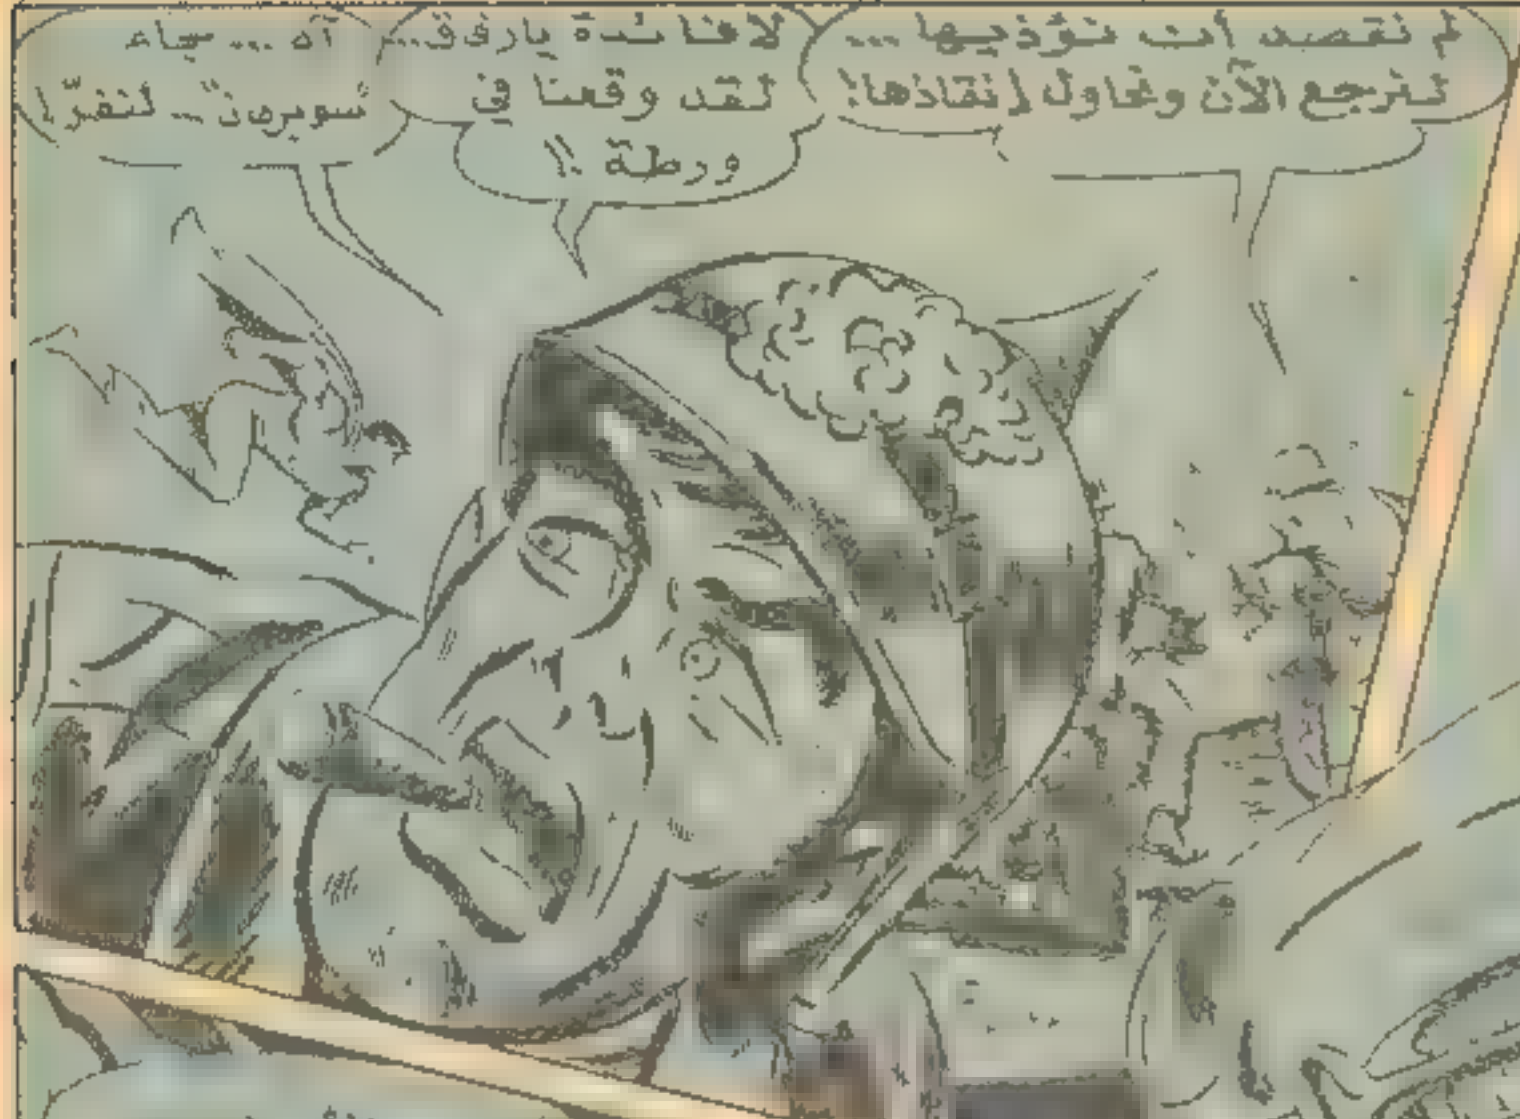 لم نقصد أن نؤذيها ...
لنرجع الآن ونحاول إنقاذها!
لا فائدة يا رفاق ...
لقد وقعنا في
ورطة !!
آه ... جاء
"سوبرمن" ... لنفرّ!